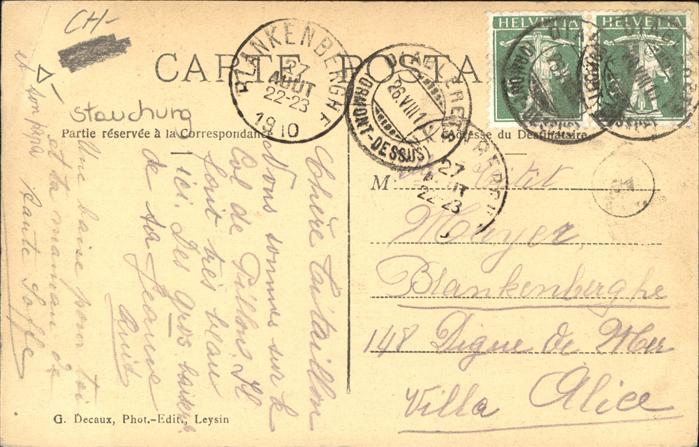 CH-
HELVETIA HELVETIA
CARTE POSTA
BLANKENBERGHE
27
AOUT
22-23
1910
26.VIII.10
(ORMONT-DESSUS)
27
AOUT
22-23
Stauchung
Partie réservée à la Correspondance
Adresse du Destinataire
M
Meyer,
Blankenberghe
148 Digue de Mer
Villa Alice
Chère
Nous sommes sur le
Col de Pillon. Il
fait très beau
ici. Des gros baisers
de ta Jeanne
Une baise pour toi
et ta maman de
tante
et son papa
G. Decaux, Phot.-Edit., Leysin